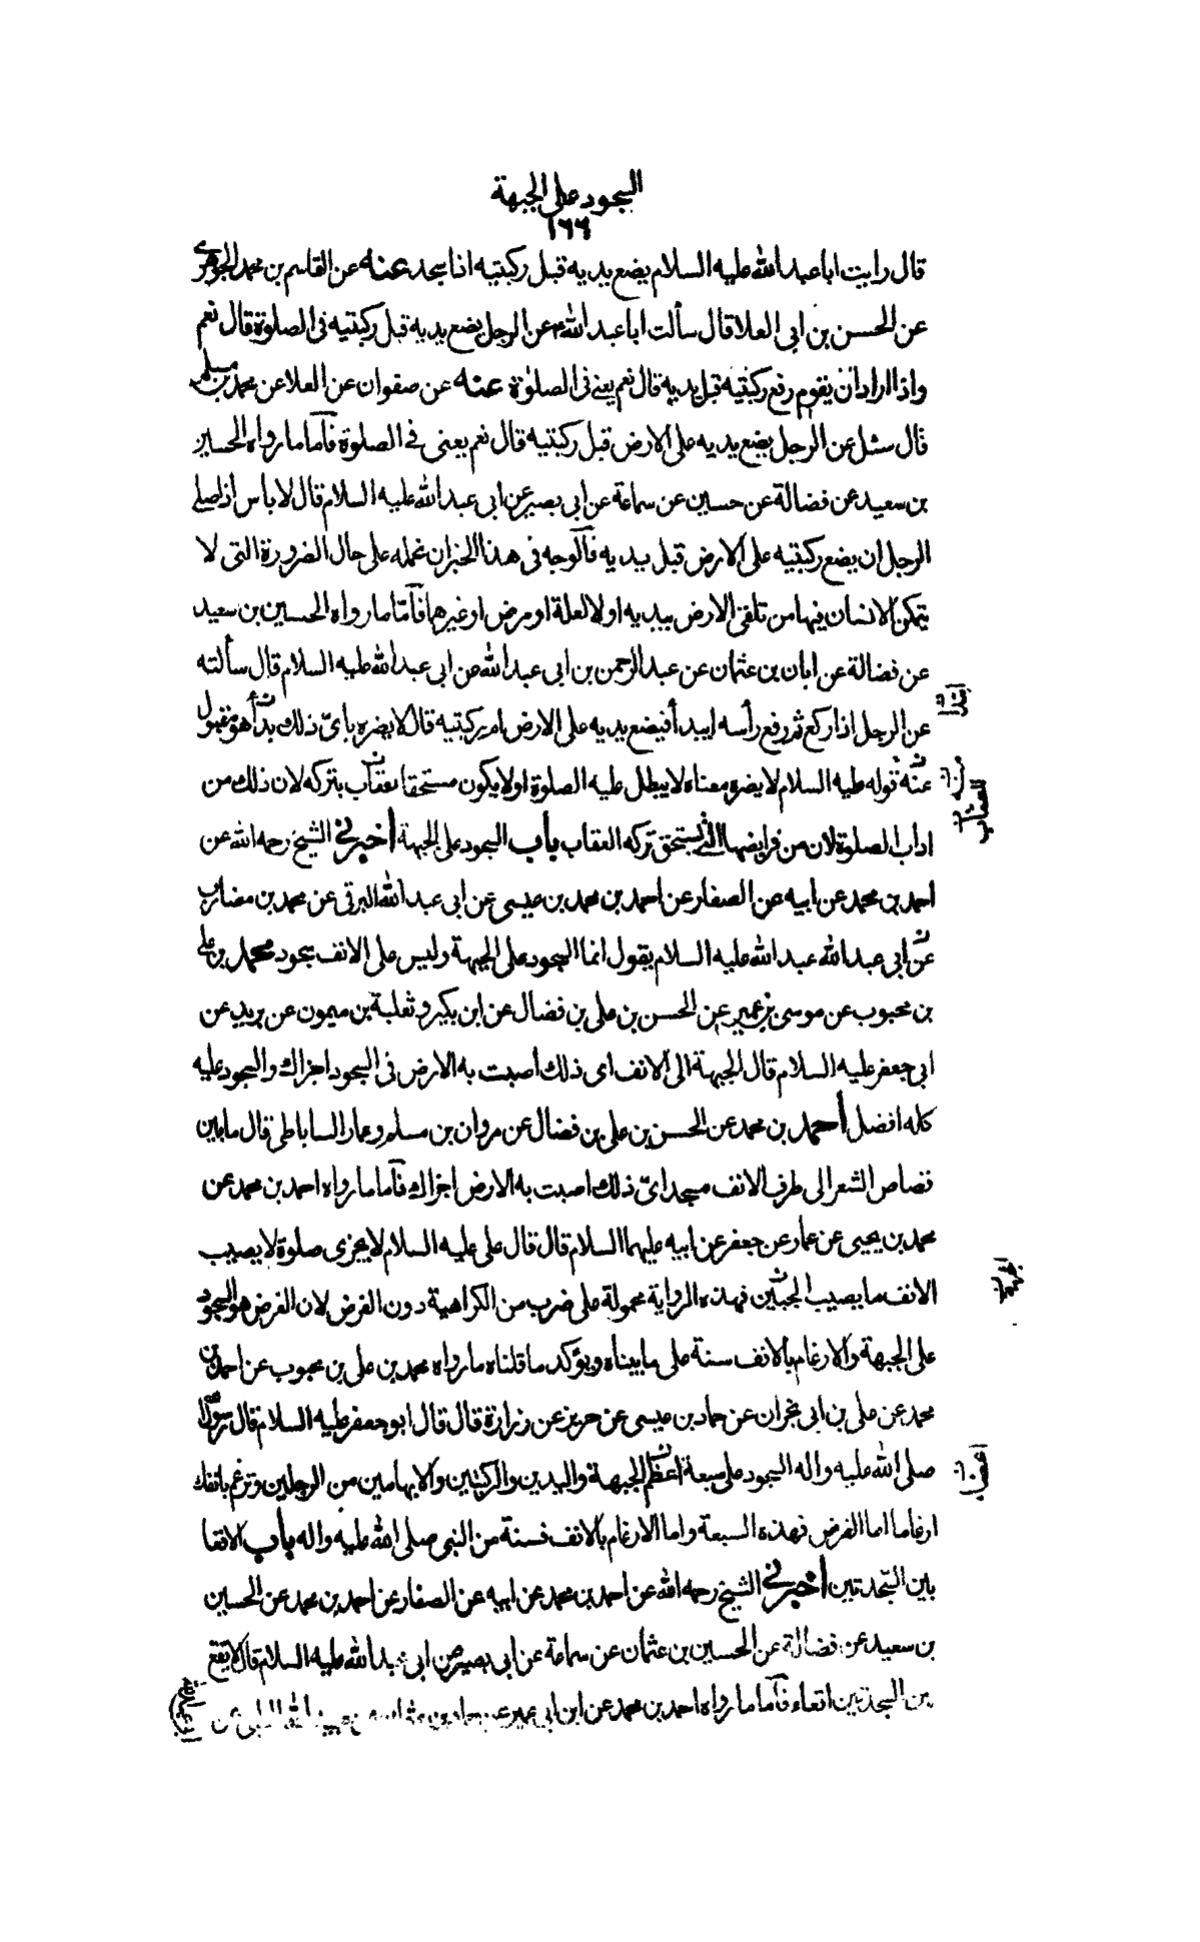 السجود على الجبهة
١٦٦
قال رايت ابا عبد الله عليه السلام يضع يديه قبل ركبتيه اذا سجد عنه عن القاسم بن محمد الجوهرى
عن الحسن بن ابى العلا قال سألت ابا عبد الله ع عن الرجل يضع يديه قبل ركبتيه فى الصلوة قال نعم
واذا اراد ان يقوم رفع ركبتيه قبل يديه قال نعم يعنى فى الصلوة عنه عن صفوان عن العلا عن محمد بن مسلم
قال سئل عن الرجل يضع يديه على الارض قبل ركبتيه قال نعم يعنى فى الصلوة فاما ما رواه الحسين
بن سعيد عن فضالة عن حسين عن سماعة عن ابى بصير عن ابى عبد الله عليه السلام قال لا باس اذا صلى
الرجل ان يضع ركبتيه على الارض قبل يديه فالوجه فى هذا الخبر ان نحمله على حال الضرورة التى لا
يتمكن الانسان فيها من تلقى الارض بيديه اولا لعلة او مرض او غيرها فامّا ما رواه الحسين بن سعيد
عن فضالة عن ابان بن عثمان عن عبد الرحمن بن ابى عبد الله عن ابى عبد الله عليه السلام قال سألته
عن الرجل اذا ركع ثم رفع رأسه ايبدأ فيضع يديه على الارض ام ركبتيه قال لا يضره باىّ ذلك بدأ هو مقبول
عنه قوله عليه السلام لا يضره معناه لا يبطل عليه الصلوة او لا يكون مستحقا بعقاب بتركه لان ذلك من
اداب الصلوة لان من فرايضها التى يستحق تركه العقاب باب السجود على الجبهة أخبرنى الشيخ رحمه الله عن
احمد بن محمد عن ابيه عن الصفار عن احمد بن محمد بن عيسى عن ابى عبد الله البرقى عن محمد بن مضارب
عن ابى عبد الله عبد الله عليه السلام يقول انما السجود على الجبهة وليس على الانف سجود محمد بن على
بن محبوب عن موسى بن عمير عن الحسن بن على بن فضال عن ابن بكير وثعلبة بن ميمون عن بريد عن
ابى جعفر عليه السلام قال الجبهة الى الانف اى ذلك اصبت به الارض فى السجود اجزاك والسجود عليه
كله افضل أحمد بن محمد عن الحسن بن على بن فضال عن مروان بن مسلم وعمار الساباطى قال ما بين
قصاص الشعر الى طرف الانف مسجد اىّ ذلك اصبت به الارض اجزاك فاما ما رواه احمد بن محمد عن
محمد بن يحيى عن عمار عن جعفر عن ابيه عليهما السلام قال قال على عليه السلام لا يجزى صلوة لا يصيب
الانف ما يصيب الجبين فهذه الرواية محمولة على ضرب من الكراهية دون الفرض لان الفرض هو السجود
على الجبهة والارغام بالانف سنة على ما بيناه ويؤكد ما قلناه ما رواه محمد بن على بن محبوب عن احمد بن
محمد عن على بن ابى نجران عن حماد بن عيسى عن حريز عن زرارة قال قال ابو جعفر عليه السلام قال رسول الله
صلى الله عليه واله السجود على سبعة اعظم الجبهة واليدين والركبتين والابهامين من الرجلين وترغم بانفك
ارغاما اما الفرض فهذه السبعة واما الارغام بالانف فسنة من النبى صلى الله عليه واله باب الاقعا
بين السجدتين أخبرنى الشيخ رحمه الله عن احمد بن محمد عن ابيه عن الصفار عن احمد بن محمد عن الحسين
بن سعيد عن فضالة عن الحسين بن عثمان عن سماعة عن ابى بصير عن ابى عبد الله عليه السلام قال لا تقع
بين السجدتين اقعاء فاما ما رواه احمد بن محمد عن ابن ابى عمير عن حماد بن عثمان عن عبيد الله الحلبى عن